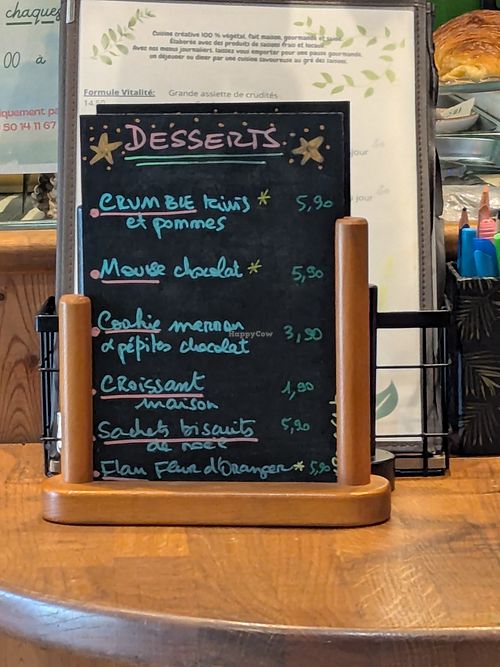 chaque
00 à
iquement pa
50 14 11 67
Cuisine créative 100 % végétal, fait maison, gourmande et saine.
Élaborée avec des produits de saisons frais et locaux.
Avec nos menus journaliers, laissez vous emporter pour une pause gourmande,
un déjeuner ou diner par une cuisine savoureuse au gré des saisons.
Formule Vitalité: Grande assiette de crudités
14,50
jour
u jour
DESSERTS
CRUMBLE kiwis 5,90
et pommes
Mousse chocolat 5,90
Cookie marron 3,90
& pépites chocolat
CROISSANT 1,90
maison
Sachets biscuits 5,90
de noël
Flan Fleur d'Oranger 5,90
HappyCow